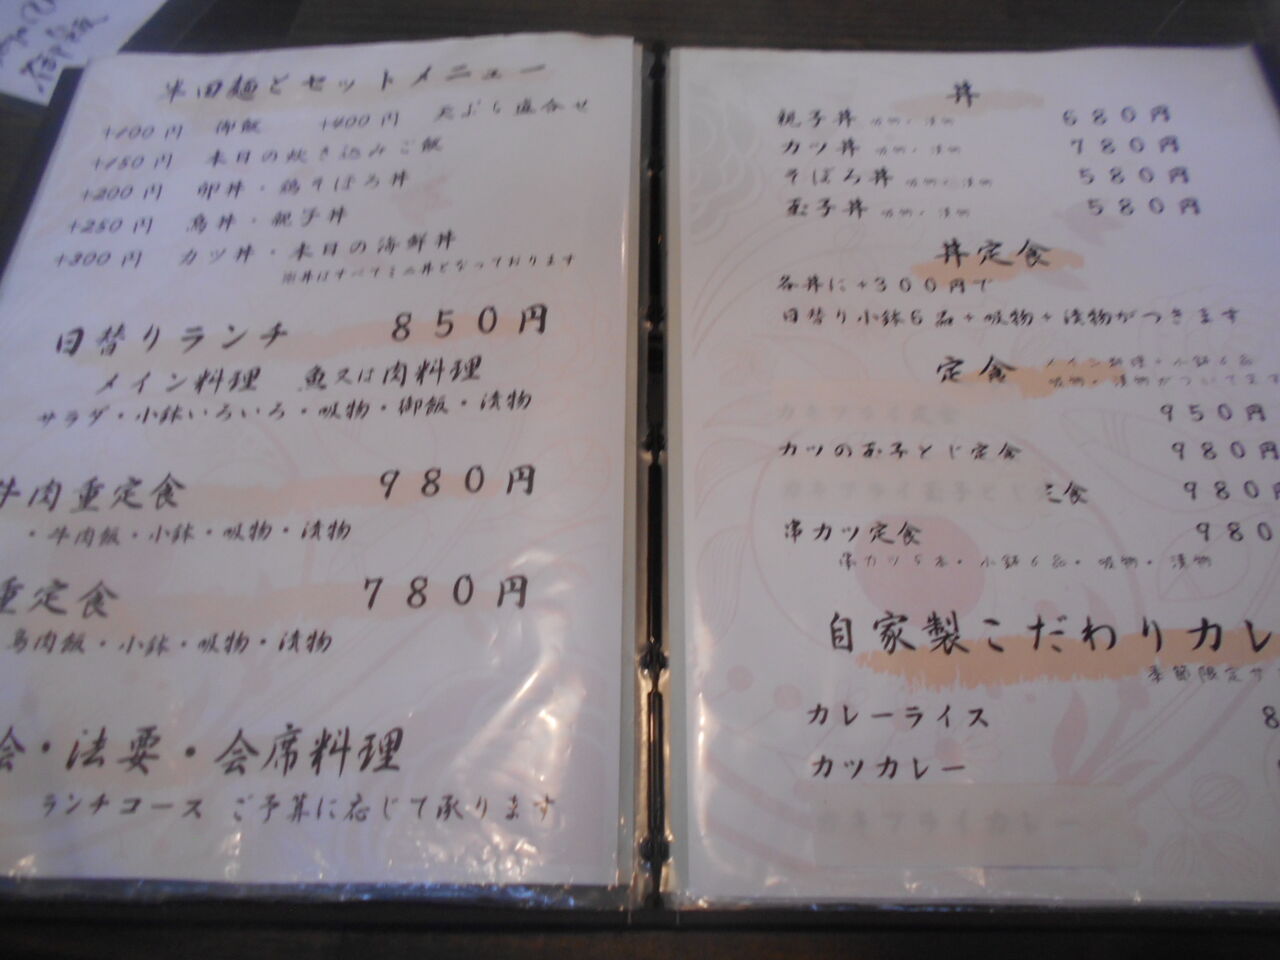 御飯
半田麺とセットメニュー
+100円 御飯 +400円 天ぷら盛合せ
+150円 本日の炊き込みご飯
+200円 卵丼・鶏そぼろ丼
+250円 鳥丼・親子丼
+300円 カツ丼・本日の海鮮丼
※丼はすべてミニ丼となっております
日替りランチ 850円
メイン料理 魚又は肉料理
サラダ・小鉢いろいろ・吸物・御飯・漬物
牛肉重定食 980円
・牛肉飯・小鉢・吸物・漬物
重定食 780円
鳥肉飯・小鉢・吸物・漬物
会・法要・会席料理
ランチコース ご予算に応じて承ります
丼
親子丼 吸物・漬物 680円
カツ丼 吸物・漬物 780円
そぼろ丼 吸物・漬物 580円
玉子丼 吸物・漬物 580円
丼定食
各丼に+300円で
日替り小鉢6品+吸物+漬物がつきます
定食 メイン料理・小鉢6品
吸物・漬物がついてます
カキフライ定食 950円
カツの玉子とじ定食 980円
カキフライ玉子とじ定食 980円
串カツ定食 980
串カツ5本・小鉢6品・吸物・漬物
自家製こだわりカレ
季節限定サ
カレーライス 8
カツカレー
カキフライカレー